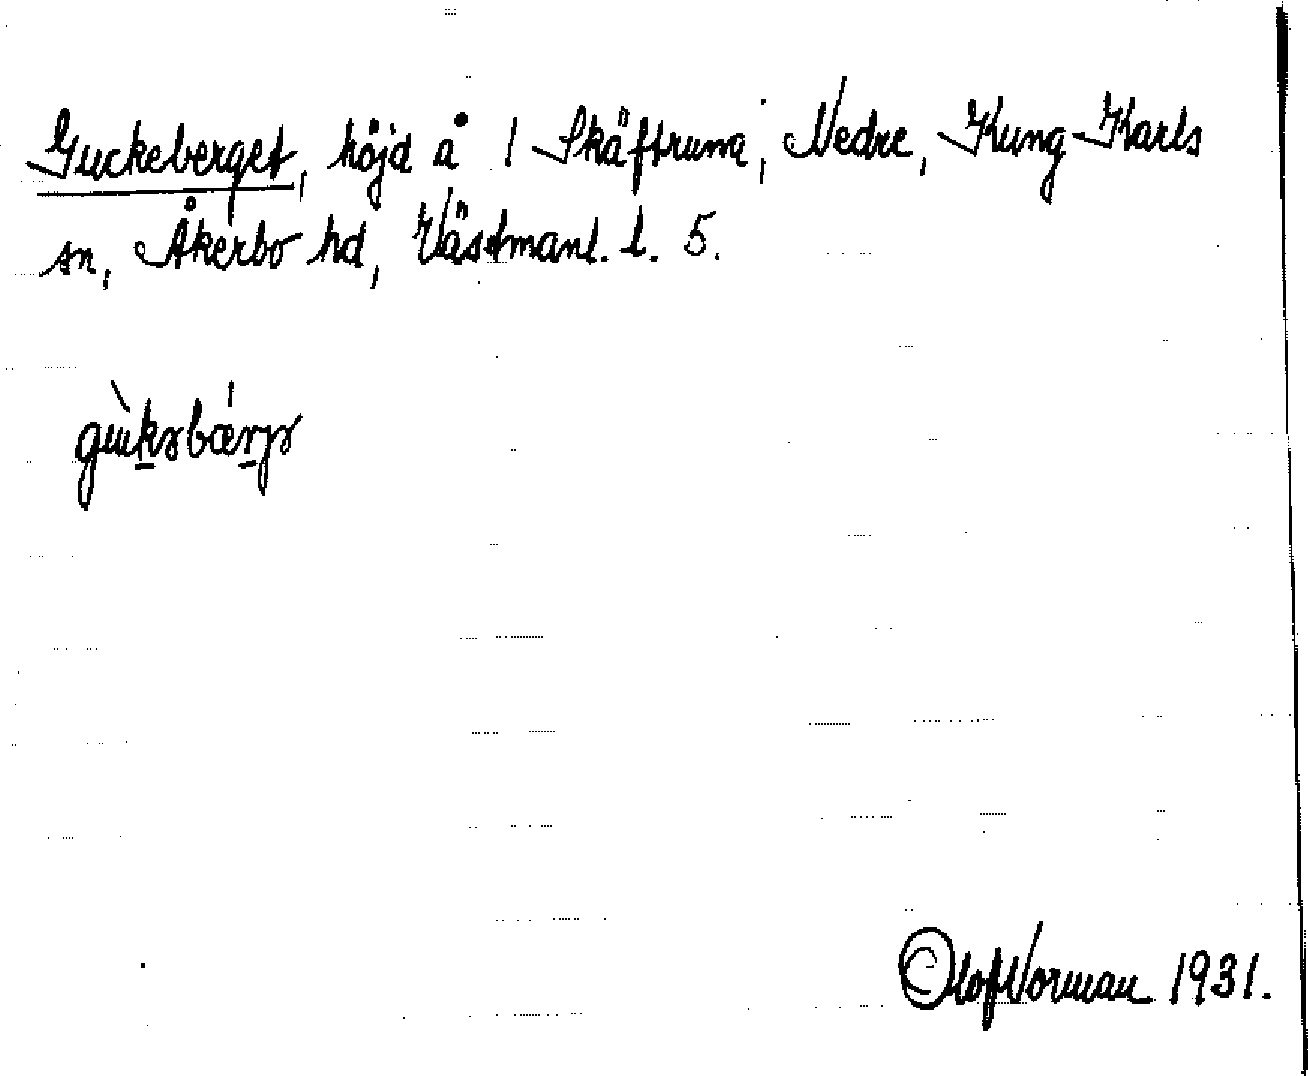 Guckeberget, höjd å 1 Skäftruna, Nedre, Kung-Karls
sn, Åkerbo hd, Västmanl. l. 5.
Olof Norman 1931.